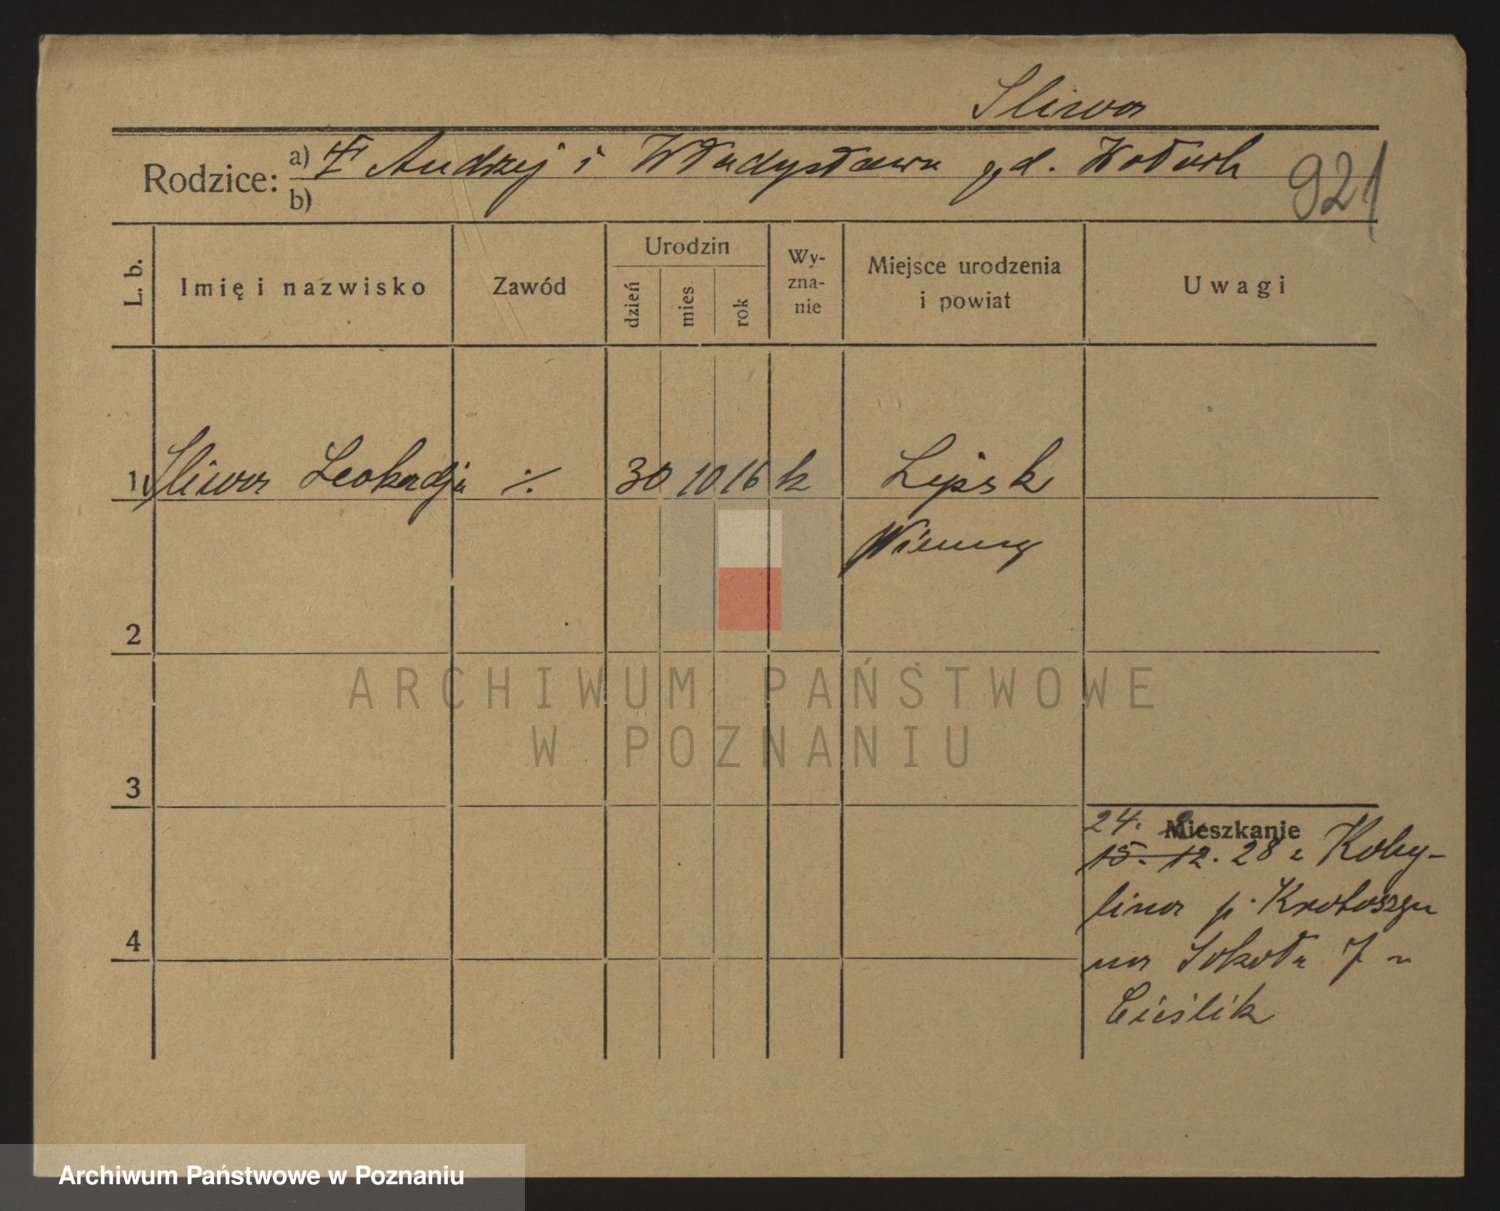 Śliwa
Rodzice: a) ‡ Andrzej i Władysława gd. Kołach
b)
921
L. b.
Imię i nazwisko
Zawód
Urodzin
dzień
mies
rok
Wy-
zna-
nie
Miejsce urodzenia
i powiat
Uwagi
1 Śliwa Leokadja ·/. 30 10 16 k Lipsk
Niemcy
2
3
4
Mieszkanie
24.
15. 12. 28 z Koby-
lina p. Krotoszyn
na Sokoła 7 u
Cieślik
ARCHIWUM PAŃSTWOWE
W POZNANIU
Archiwum Państwowe w Poznaniu